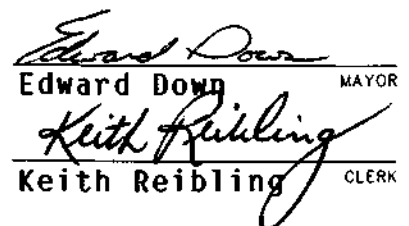 Edward Down
Edward Down MAYOR
Keith Reibling
Keith Reibling CLERK